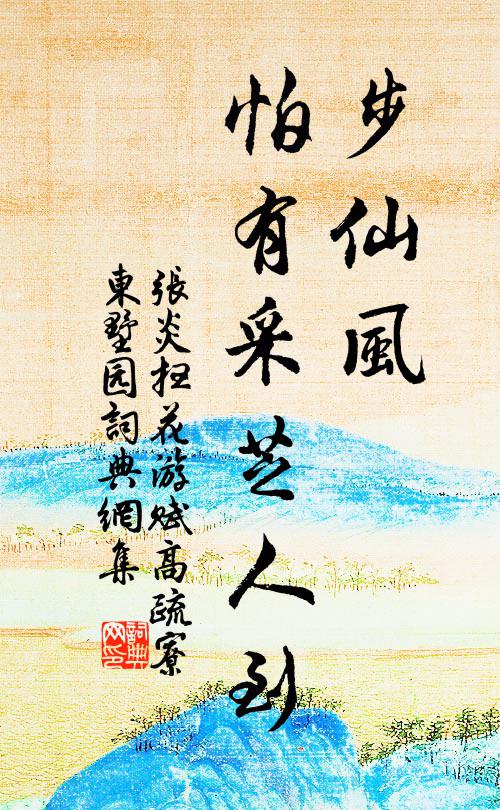 步仙風
怕有采芝人到
張炎扫花游赋高疏寮
東墅园詞典網集
詞典
网印